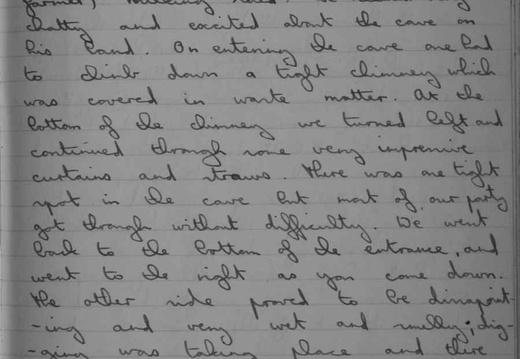 chatty and excited about the cave on
his land. On entering the cave one had
to climb down a tight chimney which
was covered in waste matter. At the
bottom of the chimney we turned left and
continued through some very impressive
curtains and straws. There was one tight
spot in the cave but most of our party
got through without difficulty. We went
back to the bottom of the entrance, and
went to the right as you come down.
The other side proved to be disappoint-
-ing and very wet and smelly; dig-
-ging was taking place and there